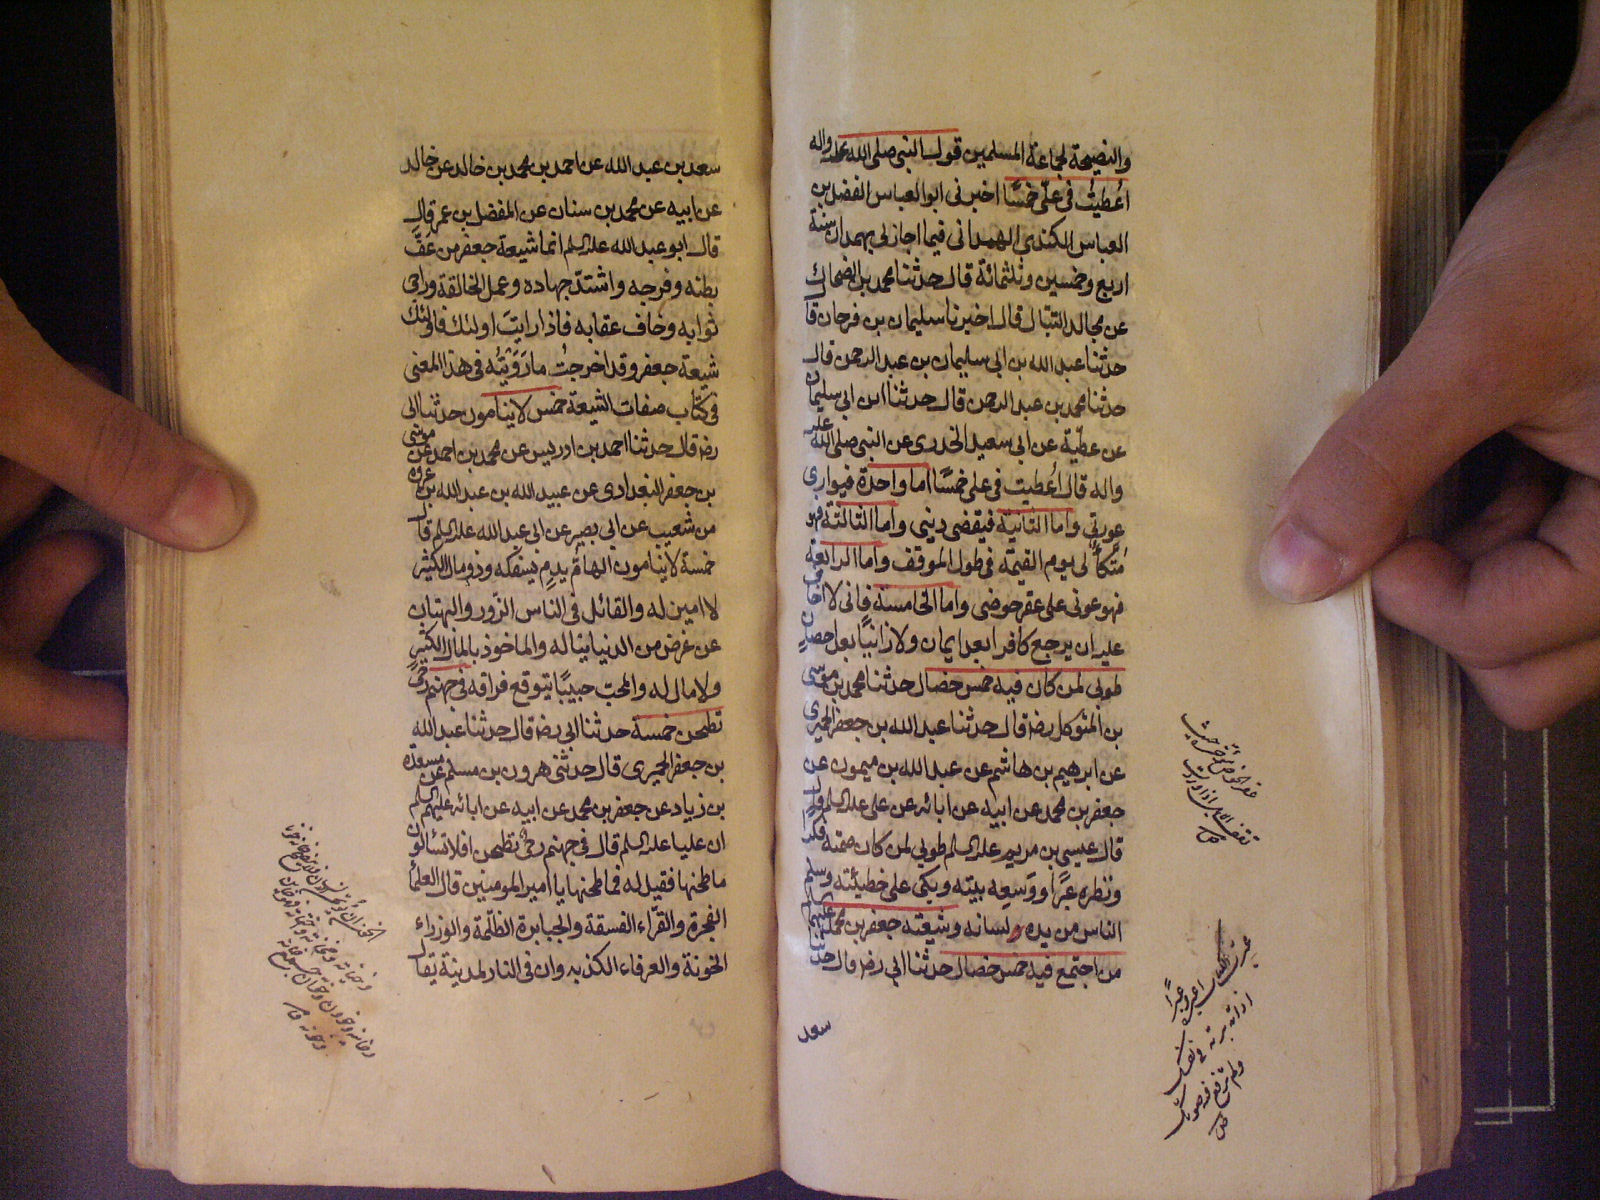 والنصيحة لجماعة المسلمين قول النبي صلى الله عليه واله
أعطيت في علي خمسًا اخبرني ابوالعباس الفضل بن
العباس الكندي الهمداني فيما اجاز لي بهمدان سنة
اربع وخمسين وثلثمائة قال حدثنا محمد بن الضحاك
عن مجالد النبال قال اخبرنا سليمان بن فرحان قا
حدثنا عبد الله بن ابي سليمان بن عبد الرحمن قال
حدثنا محمد بن عبد الرحمن قال حدثنا ابن ابي سليمان
عن عطية عن ابي سعيد الخدري عن النبي صلى الله عليه
واله قال أعطيت في علي خمسًا اما واحدة فيواري
عورتي واما الثانية فيقضي ديني واما الثالثة فهو
مُتكأ لي يوم القيمة في طول الموقف واما الرابعة
فهو عوني على عقر حوضي واما الخامسة فاني لا اخاف
عليه ان يرجع كافرا بعد ايمان ولا زانيًا بعد احصان
طوبى لمن كان فيه خمس خصال حدثنا محمد بن موسى
بن المتوكل رضه قال حدثنا عبد الله بن جعفر الحميري
عن ابرهيم بن هاشم عن عبد الله بن ميمون عن
جعفر بن محمد عن ابيه عن ابائه عن علي عليه السلم قال
قال عيسى بن مريم عليه السلم طوبى لمن كان صمته فكرا
ونظره عبرًا ووسعه بيته وبكى على خطيئته وسلم
الناس من يده ولسانه وشيعته جعفر بن محمد عليهم
من اجتمع فيه خمس خصال حدثنا ابي رضه قال حدثنا
سعد
سعد بن عبد الله عن احمد بن محمد بن خالد عن خالد
عن ابيه عن محمد بن سنان عن المفضل بن عمر قال
قال ابو عبد الله عليه السلم انما شيعة جعفر من عَفَّ
بطنه وفرجه واشتدّ جهاده وعمل لخالقه ورجى
ثوابه وخاف عقابه فاذا رايتَ اولئك فاولئك
شيعة جعفر وقد اخرجتُ ما رَوَيْتُه في هذا المعنى
في كتاب صفات الشيعة خمس لا ينامون حدثنا ابي
رضه قال حدثنا احمد بن ادريس عن محمد بن احمد عن موسى
بن جعفر البغدادي عن عبيد الله بن عبد الله بن عروة
من شعيب عن ابي بصير عن ابي عبد الله عليه السلم قال
خمسة لا ينامون الهامّ بدمٍ يسفكه وذو مال كثير
لا امين له والقائل في الناس الزّور والبهتان
عن غرض من الدنيا يناله والماخوذ بالمال الكثير
ولا مال له والمحبّ حبيبًا يتوقع فراقه في جهنم رحًى
تطحن خمسة حدثنا ابي رضه قال حدثنا عبد الله
بن جعفر الحميري قال حدثني هرون بن مسلم عن مسعدة
بن زياد عن جعفر بن محمد عن ابيه عن ابائه عليهم السلم
ان عليا عليه السلم قال في جهنم رحًى تطحن افلا تسألون
ما طحنها فقيل له فما طحنها يا امير المومنين قال العلماء
الفجرة والقرّاء الفسقة والجبابرة الظلّمة والوزراء
الخونة والعرفاء الكذبه وان في النار لمدينة يقال